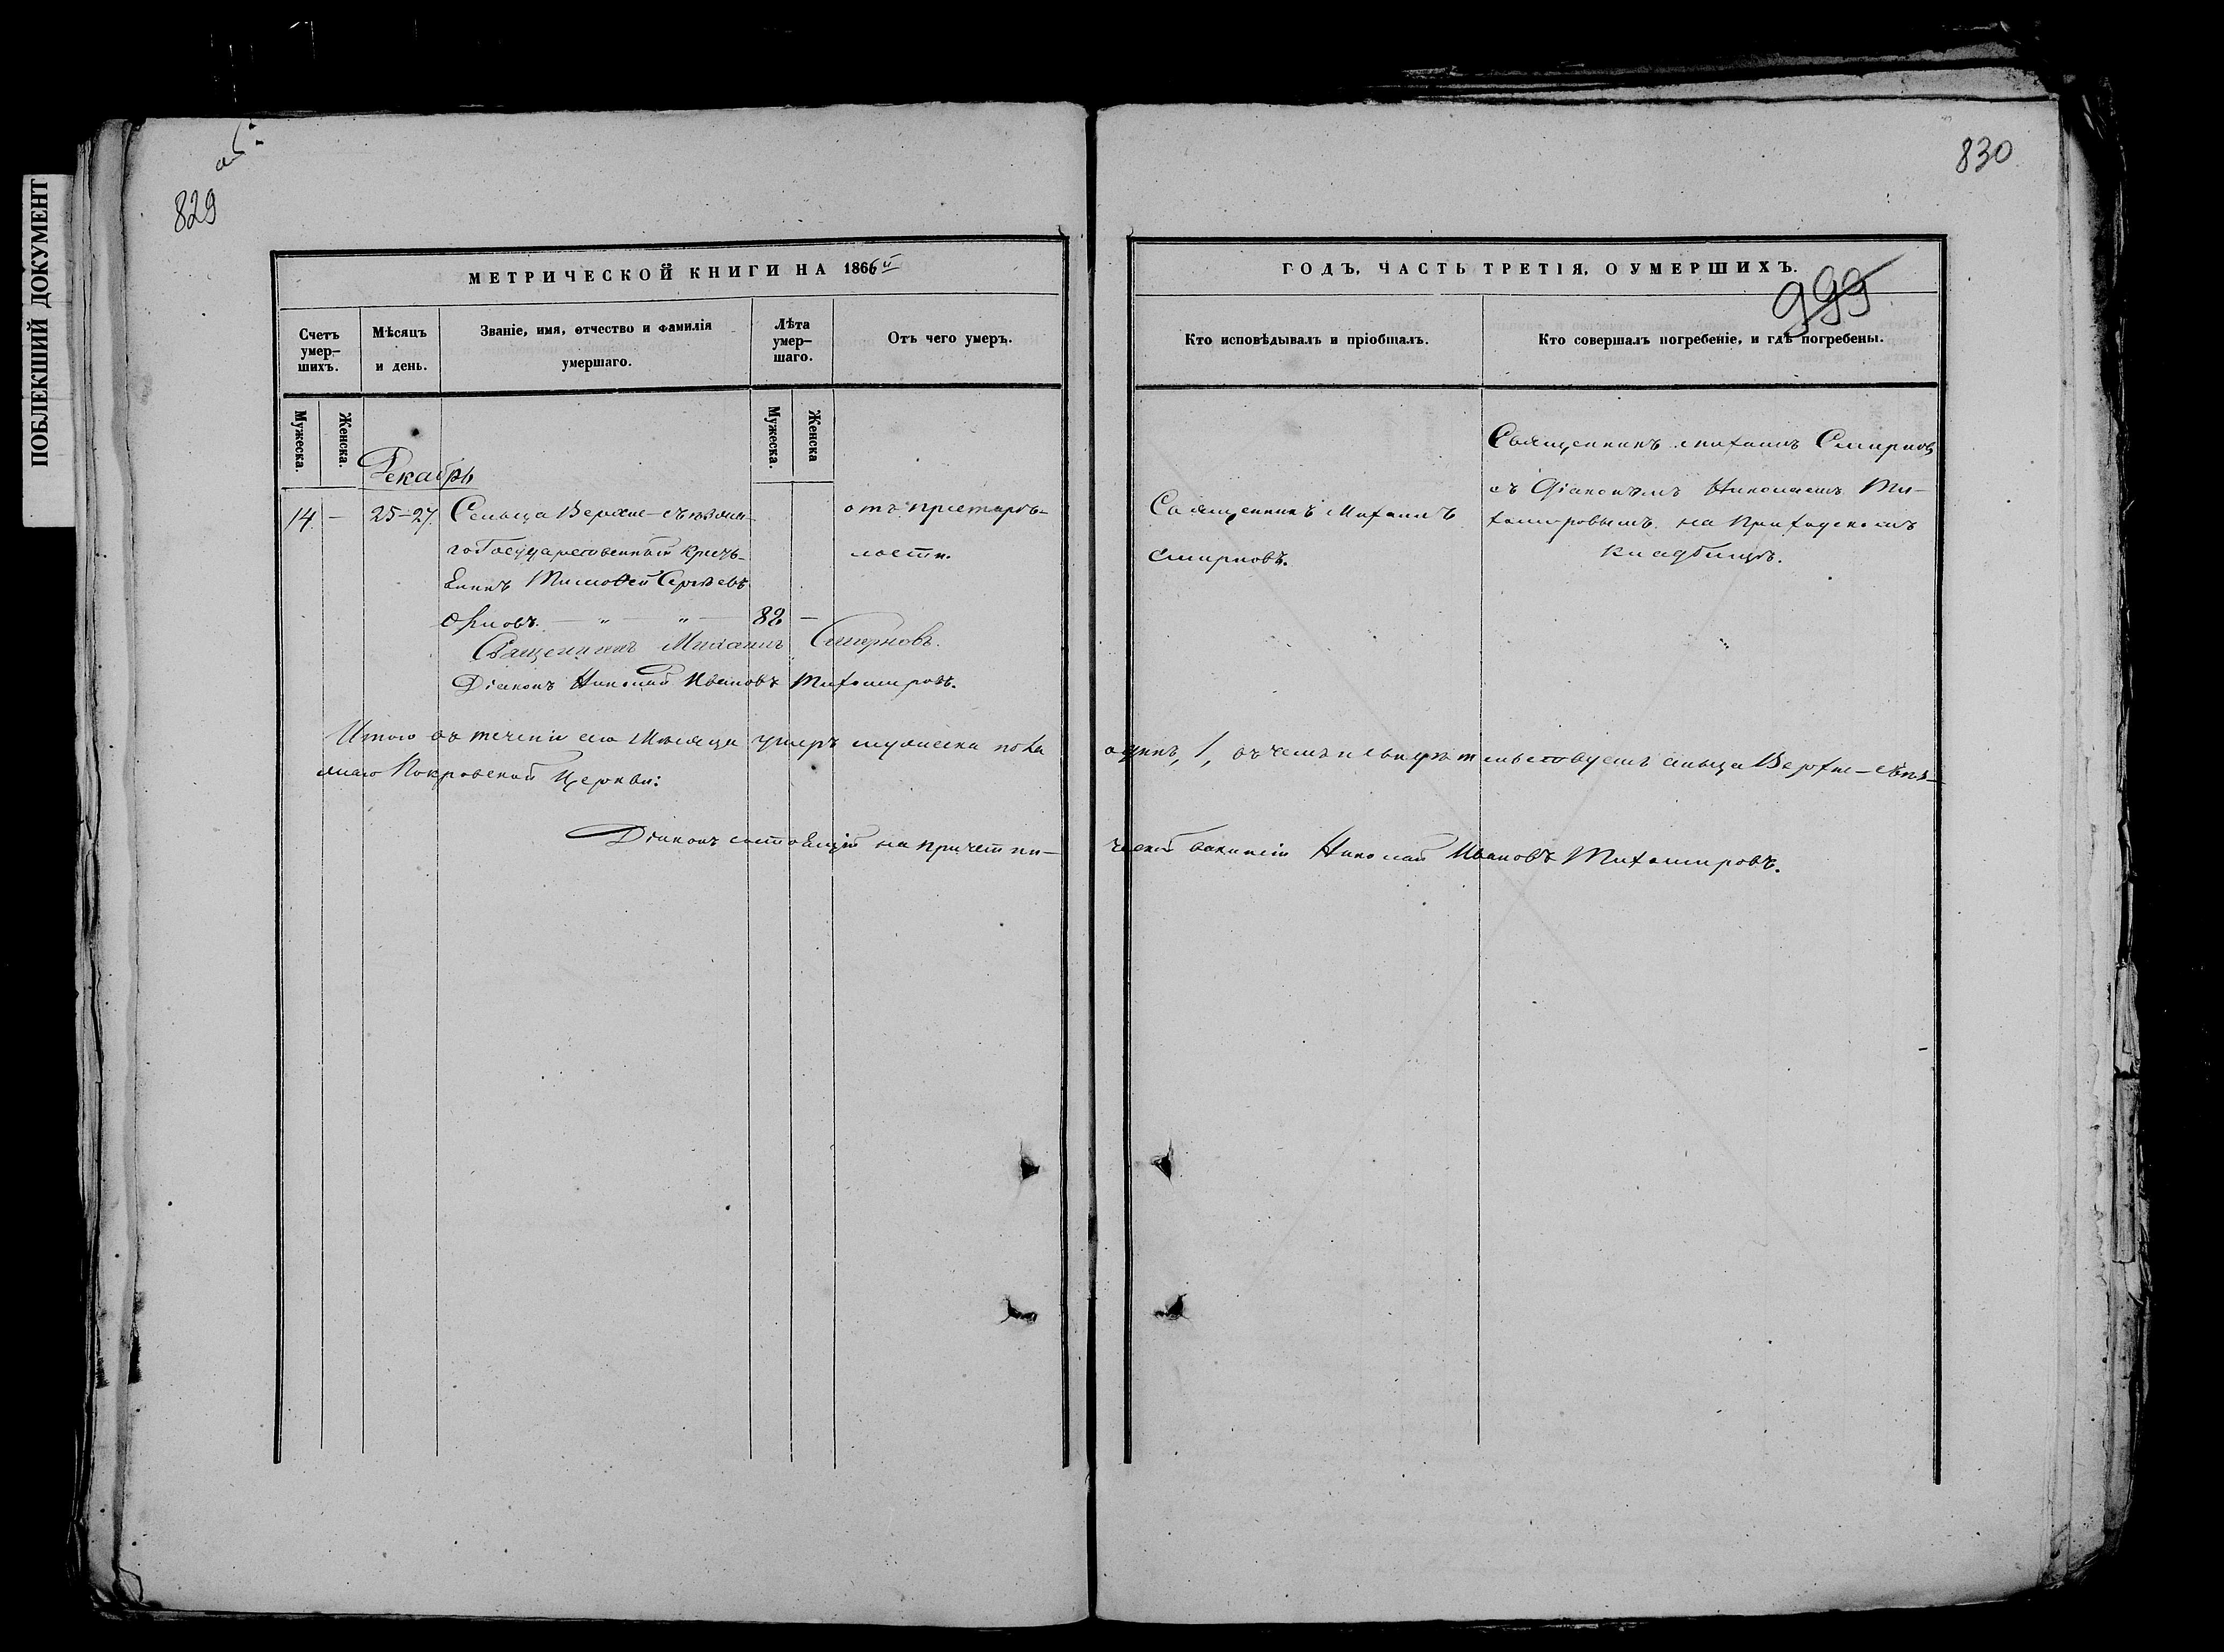 ПОБЛЕКШИЙ ДОКУМЕНТ
829
830
МЕТРИЧЕСКОЙ КНИГИ НА 1866й
ГОДЪ, ЧАСТЬ ТРЕТІЯ, О УМЕРШИХЪ.
999
Счетъ умер–шихъ.
Мѣсяцъ и день.
Званіе, имя, отчество и фамилія умершаго.
Лѣта умер–шаго.
Отъ чего умеръ.
Кто исповѣдывалъ и пріобщалъ.
Кто совершалъ погребеніе, и гдѣ погребены.
Мужеска.
Женска.
Мужеска.
Женска
Декабрь
14 – 25–27.
Сельца Верхне-
го Государственный кресть-
янинъ Тимофей Сергѣевъ
82 –
отъ престарѣ-
лости.
Священникъ Михаилъ
Смирновъ.
Священникъ Михаилъ Смирновъ
съ Діакономъ Николаемъ Ти-
хомировымъ на Приходскомъ
кладбищѣ.
Священникъ Михаилъ Смирновъ.
Діаконъ Николай Ивановъ Тихомировъ.
Итого въ теченіи сего Мѣсяца умеръ мужеска пола
одинъ, 1, въ чемъ и свидѣтельствуемъ сельца Верхне-
Покровской Церкви:
Діаконъ состоящій на причетни-
ческой вакансіи Николай Ивановъ Тихомировъ.